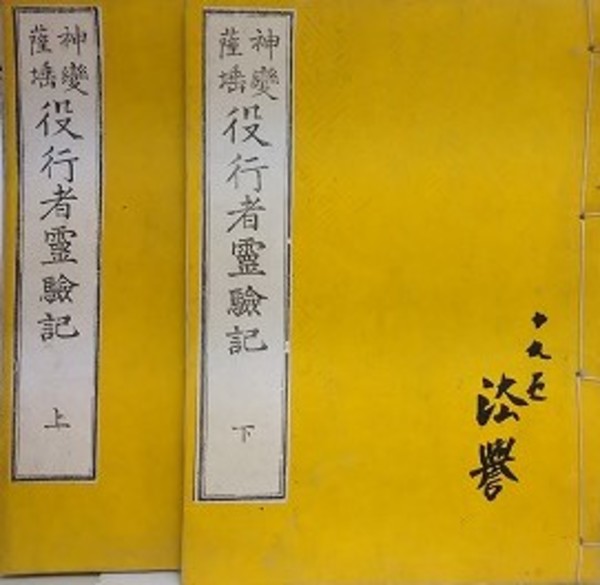 神變
薩埵
役行者靈驗記
上
神變
薩埵
役行者靈驗記
下
十九世
法譽